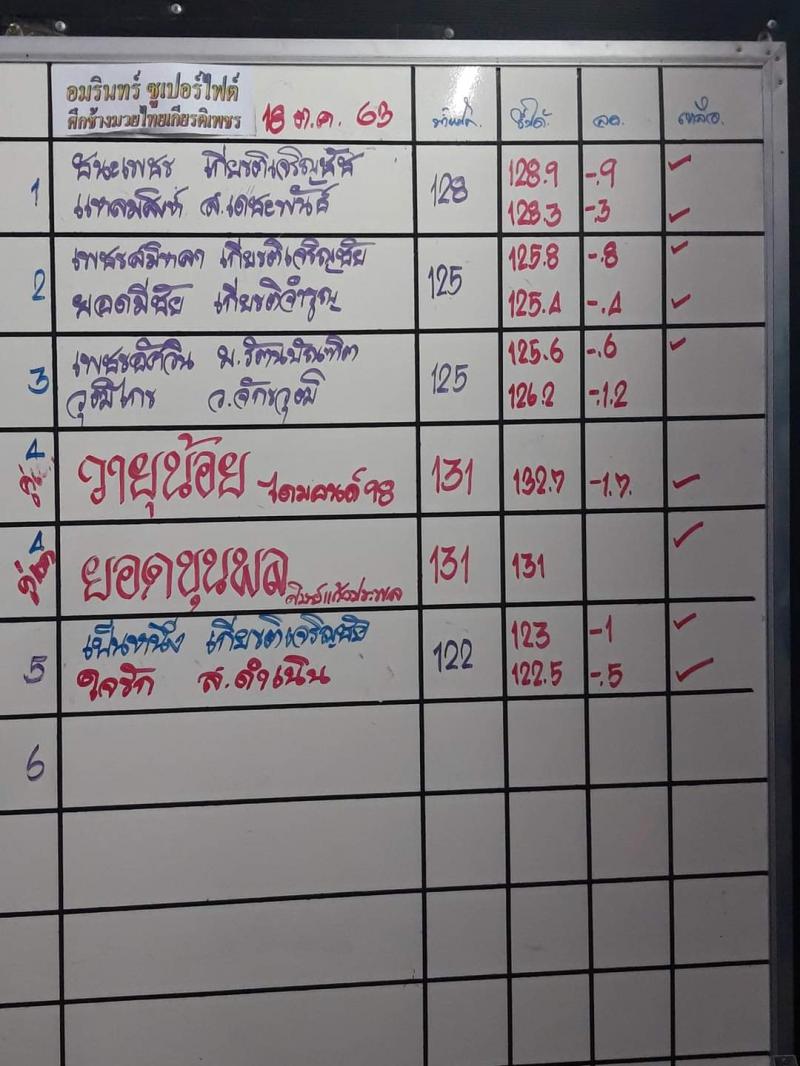 อมรินทร์ ซูเปอร์ไฟต์
ศึกช้างมวยไทยเกียรติเพชร 18 ต.ค. 63 พิกัด ชั่งได้ ลด เหลือ
1 ธนะเพชร เกียรติเจริญชัย 128 128.9 -.9 ✓
แหลมสิงห์ ส.เดชะพันธ์ 128.3 -.3 ✓
2 เพชรสมิหลา เกียรติเจริญชัย 125 125.8 -.8 ✓
ยอดมีชัย เกียรติจำรูญ 125.4 -.4 ✓
3 เพชรอัศวิน ม.รัตนบัณฑิต 125 125.6 -.6 ✓
วุฒิไกร ว.จักรวุฒิ 126.2 -1.2
4 วายุน้อย ไดมอนด์98 131 132.7 -1.7. ✓
4 ยอดขุนพล ศิษย์แก้วประพล 131 131 ✓
5 เป็นหนึ่ง เกียรติเจริญชัย 122 123 -1 ✓
ใจรัก ส.ดำเนิน 122.5 -.5 ✓
6